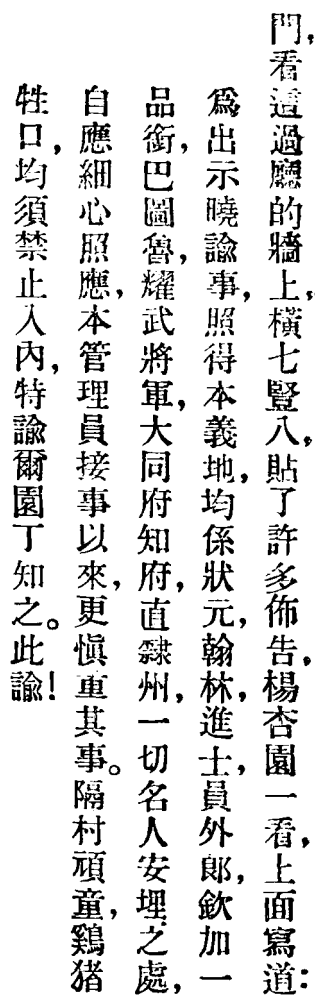 門，看這過廳的牆上，橫七豎八，貼了許多佈告，楊杏園一看，上面寫道：
爲出示曉諭事，照得本義地，均係狀元，翰林，進士，員外郎，欽加一
品銜，巴圖魯，耀武將軍，大同府知府，直隸州，一切名人安埋之處，
自應細心照應，本管理員接事以來，更愼重其事。隔村頑童，鷄猪
牲口，均須禁止入內，特諭爾園丁知之。此諭！